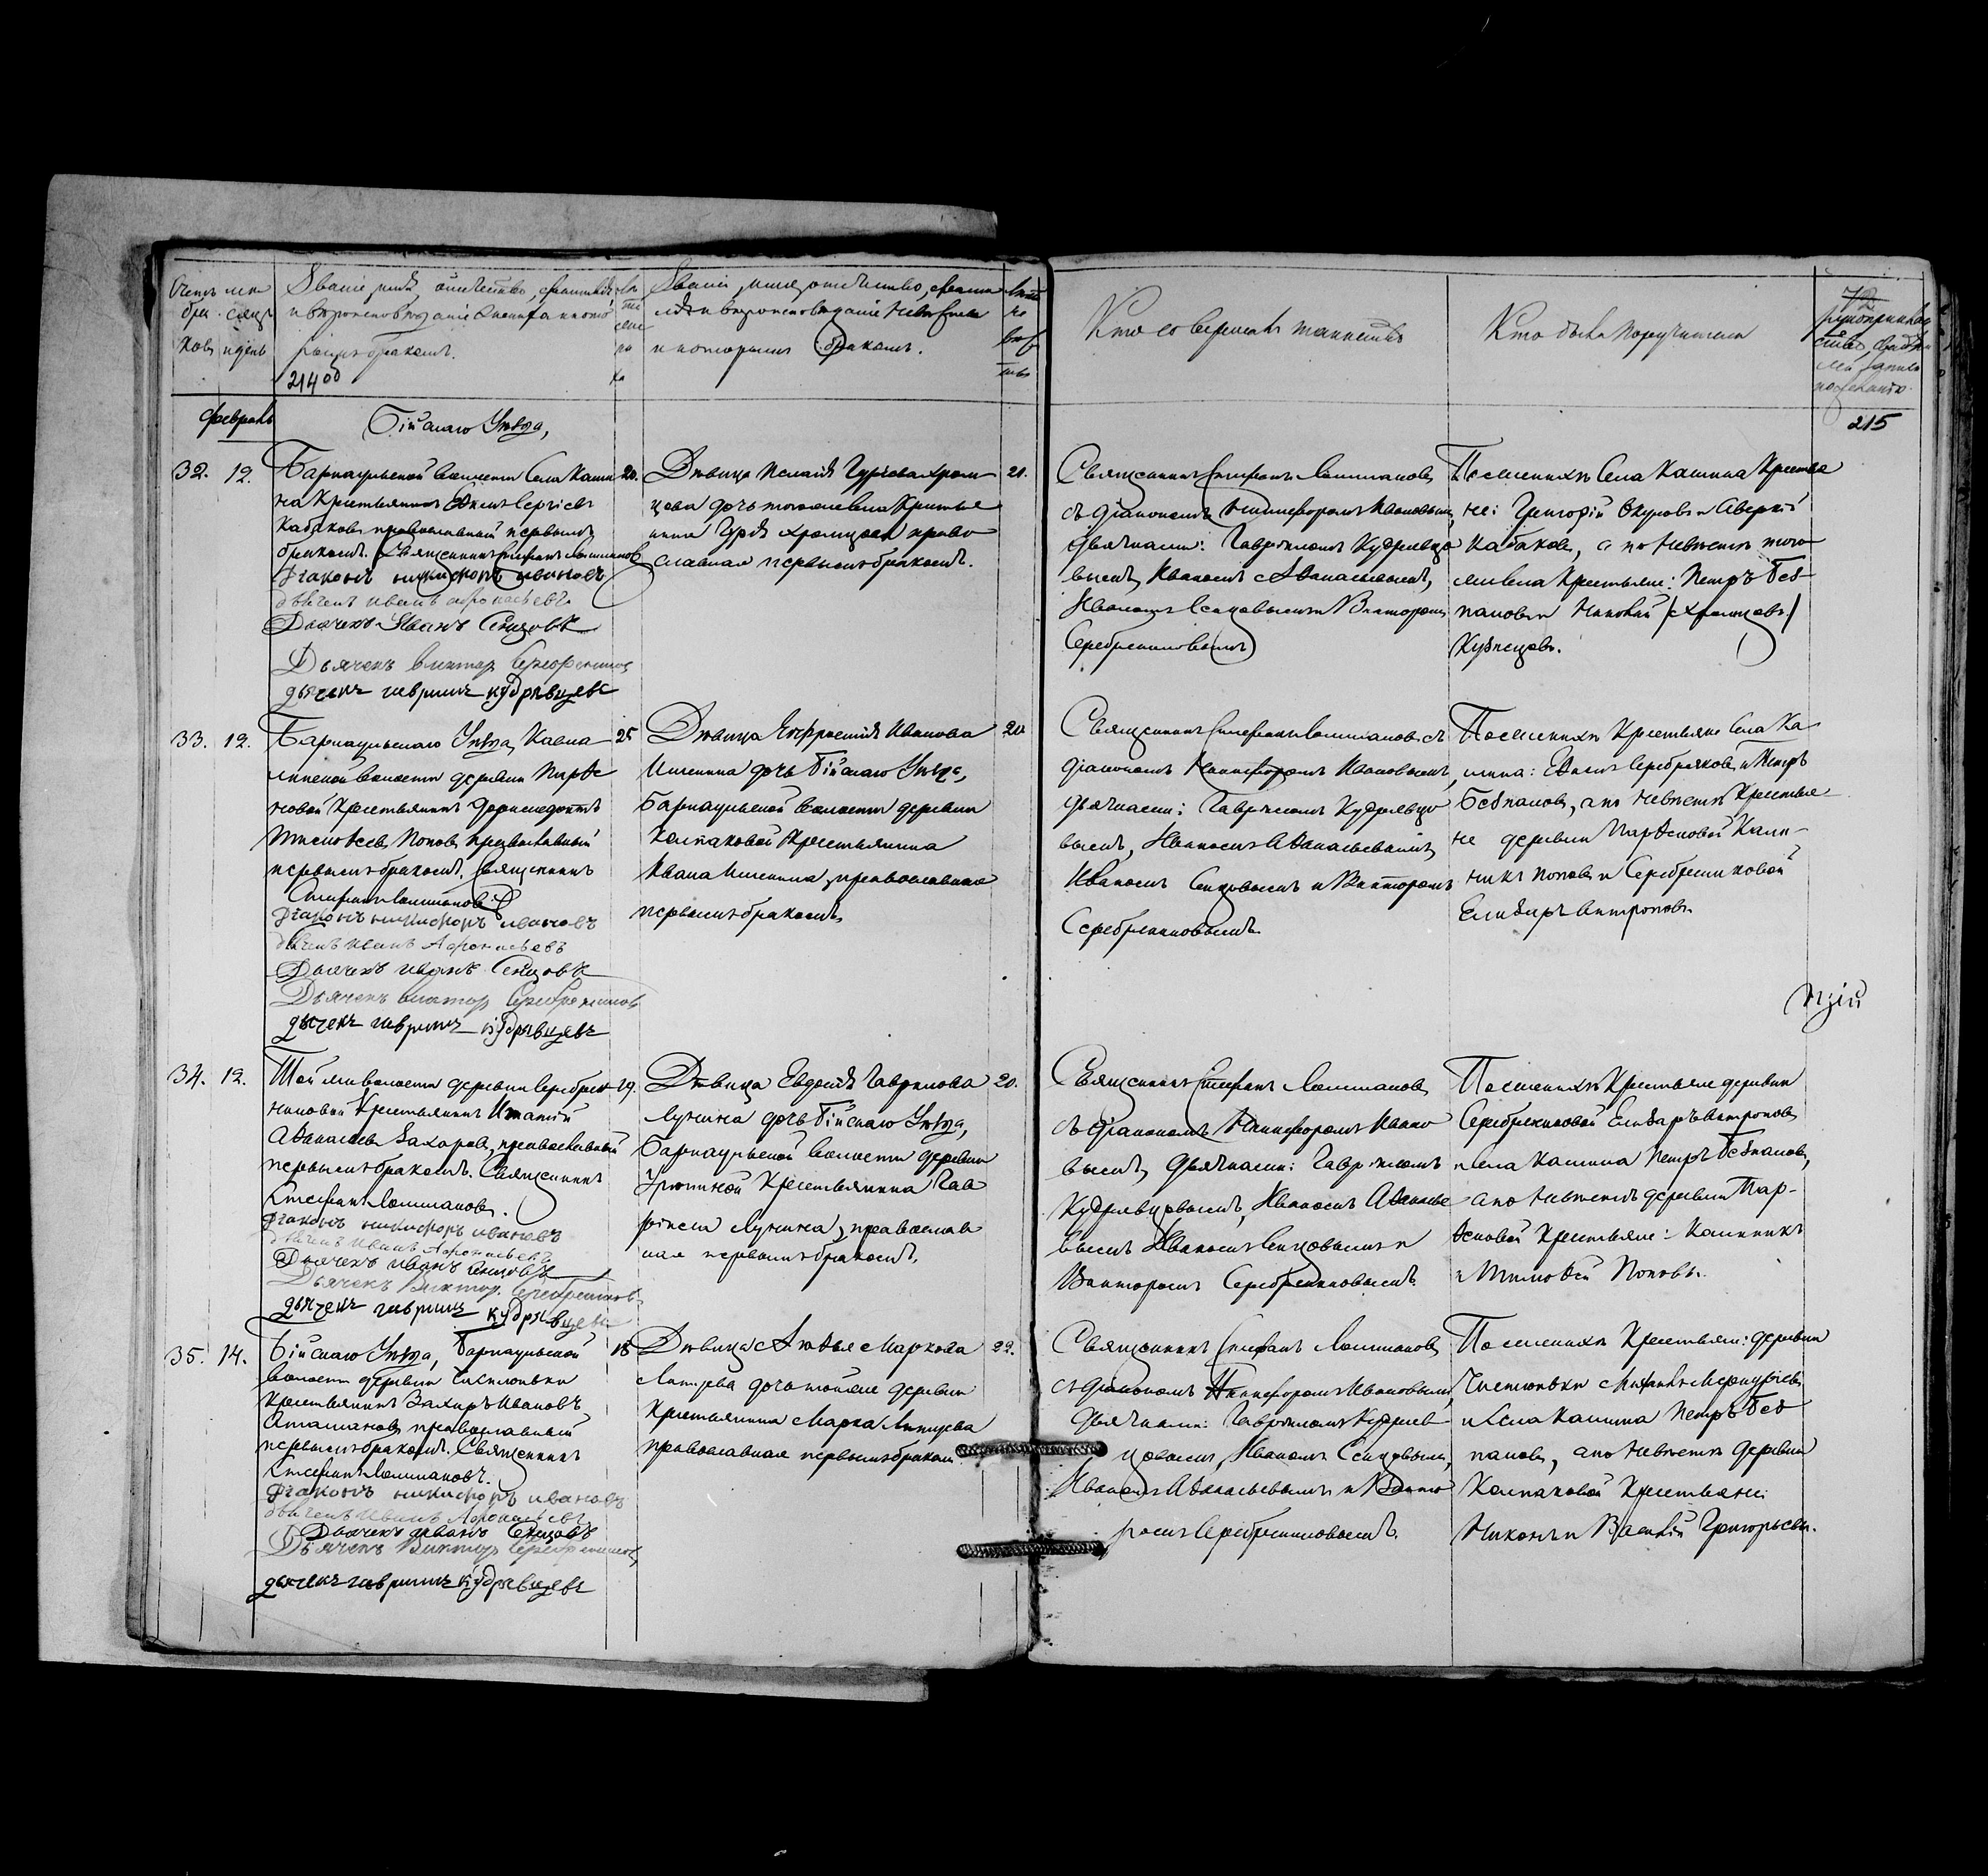 Счетъ бра ковъ
мѣ сяцъ и день
Званіе, имя, отчество, фамилія
и вѣроисповѣданіе жениха и кото
рымъ бракомъ.
214 об
Званіе, имя, отчество, фами
лія и вѣроисповѣданіе невѣсты
и которымъ бракомъ.
Кто совершалъ таинство
Кто были поручители
215
Февраль
Бійскаго Уѣзда,
32. 12.
Барнаульской волости Села Каши 20.
на Крестьянинъ Сергіевъ
Кабаковъ православный первымъ
бракомъ. Священникъ Стефанъ
Діаконъ никифоръ ивановъ
дьячекъ иванъ афонасьевъ
Дьячекъ Иванъ Сенцовъ
Дьячекъ виктор Серебрениковъ
дьячекъ гаврилъ кудрявцевъ
Дѣвица Пелагія Гурьева Хром 21.
цова дочь того же села Крестья
нина Гурія Хромцова право
славная первымъ бракомъ.
Священникъ Стефанъ
съ діакономъ Никифоромъ Ивановымъ,
дьячками: Гавріиломъ Кудрявцо
вымъ, Иваномъ Аѳанасьевымъ,
Иваномъ Сенцовымъ и Викторомъ
Серебрениковымъ
По женихѣ Села Кашина Крестья
не: Григорій Окуловъ и Аверкій
Кабаковъ, а по невѣстѣ того
же села Крестьяне: Петръ Без
пановъ и Николай /Хромцовъ/
Кузнецовъ.
33. 12.
Барнаульскаго Уѣзда, Касма 25
линской волости деревни Парѳе
новой Крестьянинъ
Тимоѳеевъ Поповъ православный
первымъ бракомъ. Священникъ
Стефанъ
Діаконъ никифоръ ивановъ
дьячекъ иванъ Афонасьевъ
Дьячекъ иванъ Сенцовъ
Дьячекъ виктор Серебрениковъ
дьячекъ гаврилъ кудрявцевъ
Дѣвица Евфросинія Иванова 20
Ишенина дочь Бійскаго Уѣзда,
Барнаульской волости деревни
Колпаковой Крестьянина
Ивана Ишенина, православная
первымъ бракомъ,
Священникъ Стефанъ съ
діакономъ Никифоромъ Ивановымъ,
дьячками: Гавріиломъ Кудрявцо
вымъ, Иваномъ Аѳанасьевымъ,
Иваномъ Сенцовымъ и Викторомъ
Серебрениковымъ.
По женихѣ Крестьяне Села Ка
шина: Серебряковъ и Петръ
Безпановъ, а по невѣстѣ Крестья
не деревни Парѳеновой Кали
никъ Поповъ и Серебрениковой
Елизаръ Антроповъ.
34. 12.
Той же волости деревни Серебрен 19.
никовой Крестьянинъ Игнатій
Аѳанасьевъ Захаровъ, православный
первымъ бракомъ. Священникъ
Стефанъ
Діаконъ никифоръ ивановъ
дьячекъ иванъ Афонасьевъ
Дьячекъ иванъ Сенцовъ
Дьячекъ Виктор. Серебрениковъ
дьячекъ гаврилъ кудрявцевъ
Дѣвица Евдокія Гаврилова 20.
Лунина дочь Бійскаго Уѣзда,
Барнаульской волости деревни
Урюпиной Крестьянина Гав
ріила Лунина, православ
ная первымъ бракомъ.
Священникъ Стефанъ
съ діакономъ Никифоромъ Ивано
вымъ, дьячками: Гавріиломъ
Кудрявцовымъ, Иваномъ Аѳанасье
вымъ Иваномъ Сенцовымъ и
Викторомъ Серебрениковымъ.
По женихѣ Крестьяне деревни
Серебрениковой Елизаръ Антроповъ
и Села Кашина Петръ Безпановъ,
а по невѣстѣ деревни Пар-
ѳеновой Крестьяне: Калинникъ
и Тимоѳей Поповы.
35. 14.
Бійскаго Уѣзда, Барнаульской 18
волости деревни Чистюньки
Крестьянинъ Захаръ Ивановъ
Аташановъ православный
первымъ бракомъ. Священникъ
Стефанъ
Діаконъ никифоръ ивановъ
дьячекъ иванъ Афонасьевъ
Дьячекъ иванъ Сенцовъ
Дьячекъ Виктор Серебрениковъ
дьячекъ гаврилъ кудрявцевъ
Дѣвица Маркова 22.
дочь тойже деревни
Крестьянина Марка
православная первымъ бракомъ.
Священникъ Стефанъ
съ діакономъ Никифоромъ Ивановымъ,
дьячками: Гавріиломъ Кудряв
цовымъ, Иваномъ Сенцовымъ,
Иваномъ Аѳанасьевымъ и Викто
ромъ Серебрениковымъ.
По женихѣ Крестьяне: деревни
Чистюньки Меркурьевъ
и Села Кашина Петръ Без
пановъ, а по невѣстѣ деревни
Колпаковой Крестьяне:
Никонъ и Василій Григорьевы.